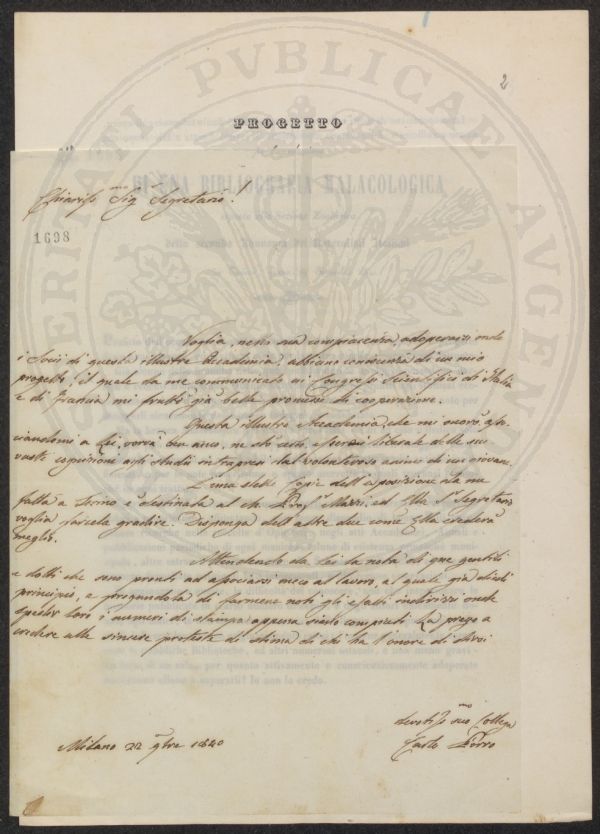 2
PROGETTO
DI UNA BIBLIOGRAFIA MALACOLOGICA
Chiariss.mo Sig.r Segretario!
1698
Voglia, nella sua compiacenza adoperarsi onde
i Socii di questa illustre Accademia abbiano conoscenza di un mio
progetto, il quale da me communicato ai Congressi Scientifici di Italia
e di Francia mi fruttò già belle promesse di cooperazione.
Questa illustre Accademia, che mi onorò
a Lei, vorrà pur anco, ne son certo, essermi liberale delle sue
vaste cognizioni agli studii intrapresi dal volonteroso animo di un giovane.
delle copie dell'esposizione da me
fatta a Torino è destinata al ch. Prof.r ed Ill. S.r Segretario
voglia farsela gradire. Disponga dell'altre due come Ella crederà
meglio.
Attendendo da Lei la nota di que gentili
e dotti che sono pronti ad associarsi meco al lavoro, al quale già diedi
principio, e pregandola di farmene noti gli esatti indirizzi onde
spedir loro i numeri di stampa appena siano compiuti La prego a
credere alle sincere proteste di stima di chi ha l'onore di dirsi
devotiss.mo suo Collega
Carlo Porro
Milano 22 9bre 1840
SERITATI PVBLICAE AVGENDAE